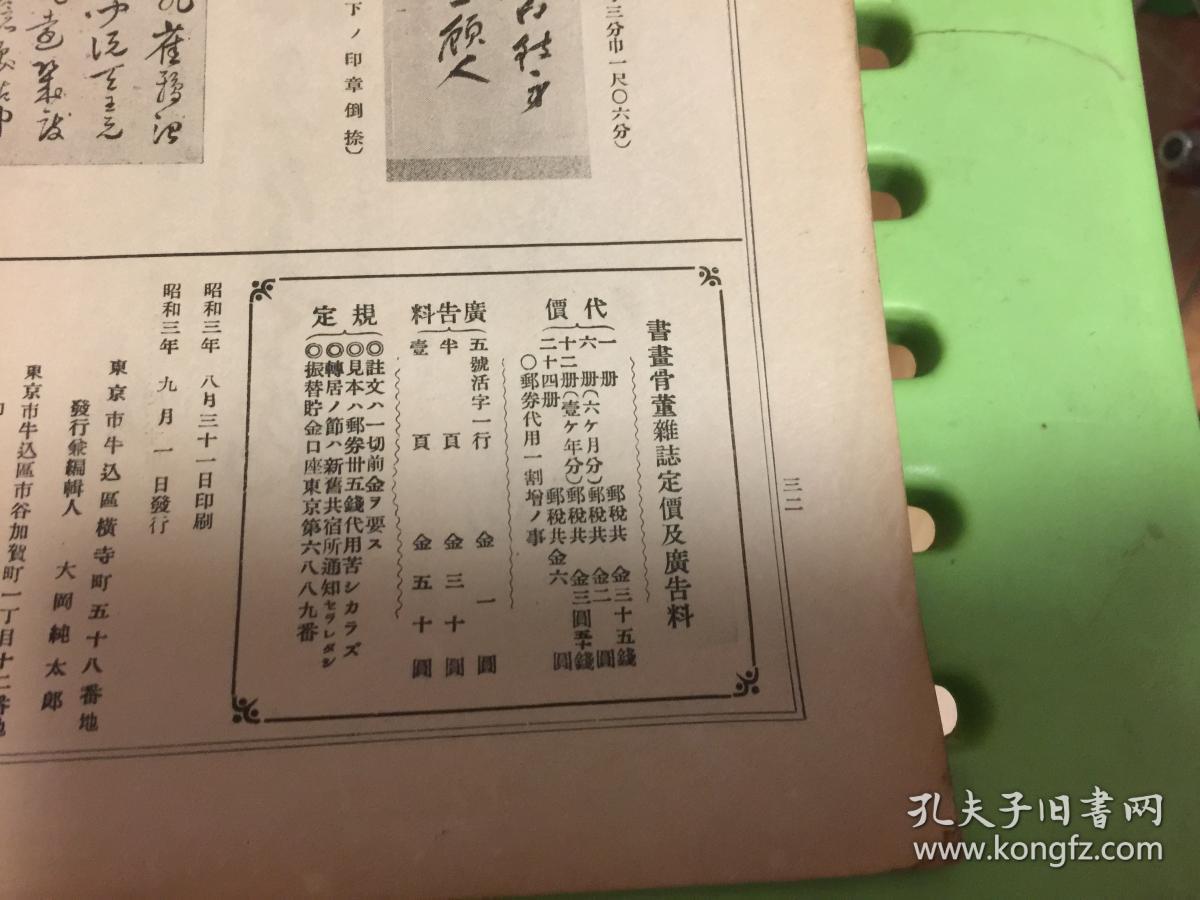 三分巾一尺〇六分）
下ノ印章倒捺）
三二
書畫骨董雜誌定價及廣告料
代價
一冊 郵稅共 金三十五錢
六冊（六ヶ月分）郵稅共 金二圓
十二冊（壹ヶ年分）郵稅共 金三圓五十錢
二十四冊 郵稅共 金六圓
〇郵券代用一割增ノ事
廣告料
五號活字一行 金一圓
半頁 金三十圓
壹頁 金五十圓
規定
◎註文ハ一切前金ヲ要ス
◎見本ハ郵券卅五錢代用苦シカラズ
◎轉居ノ節ハ新舊共宿所通知セラレタシ
◎振替貯金口座東京第六八八九番
昭和三年八月三十一日印刷
昭和三年九月一日發行
東京市牛込區橫寺町五十八番地
發行兼編輯人 大岡純太郎
東京市牛込區市谷加賀町一丁目十二番地
孔夫子旧书网
www.kongfz.com